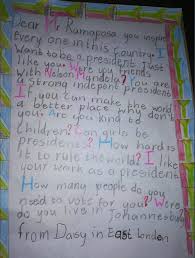 Dear Mr Ramaposa you inspire
Every one in this country. I
Want to be a president Just
like you. Were you friends
with Nelson Mandela? You are
a strong indepent president
If you can make the world
a better place how don't
you. Are you kind to
Children? Can girls be
presidents? How hard is
it to rule the world? I like
your work as a president.
How many people do you
need to vote for you? Were
do you live in Johannesbu
from Daisy in East London